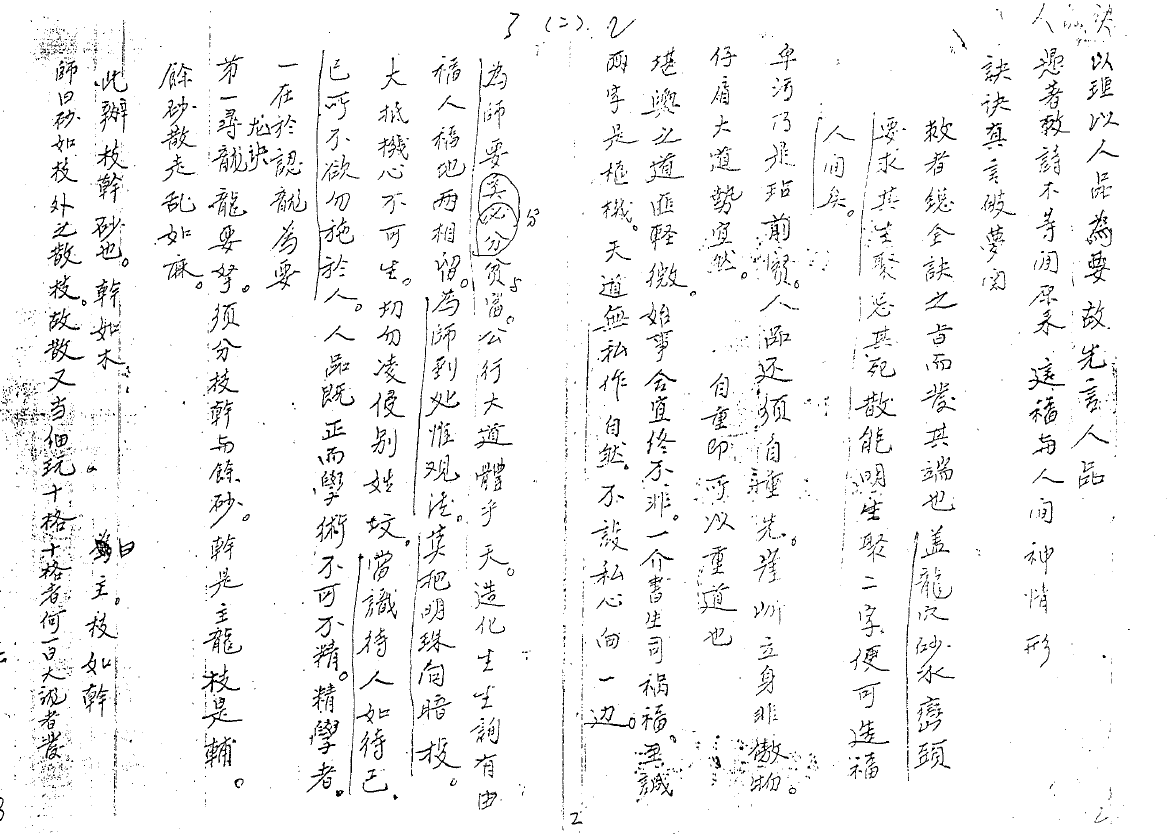 3 (二).2
以理以人品為要故先言人品
人 憑著數詩不等闲原来 這福与人间神情形
訣诀真言破夢闲
敘者總全訣之旨而發其端也盖龍穴砂水巒頭
要求其生聚忌其死散能明生聚二字便可造福
人间矣。
卑污乃是玷前賢。人品还须自重先。崖岸立身非傲物。
仔肩大道勢宜然。 自重即可以重道也
堪輿之道匪輕微。始事合宜终不非。一介書生司祸福。至誠
兩字是樞機。天道無私作自然。不設私心向一边。
為師要 必分貧富。公行大道體乎天。造化生生詢有由
福人福地两相留。為師到处惟观德。莫把明珠向暗投。
大抵機心不可生。切勿凌侵别姓坟。當識待人如待己.
己所不欲勿施於人。人品既正而學術不可不精。精學者。
一在於認龍為要
龙訣
第一尋龍龍要孥。须分枝幹与餘砂。幹是主龍枝是輔。
餘砂散走乱如麻。
此辦枝幹砂也。幹如木 曰主。枝如幹
師曰砂如枝外之散枝。故散又当细玩十格十格者何一曰大
2
2